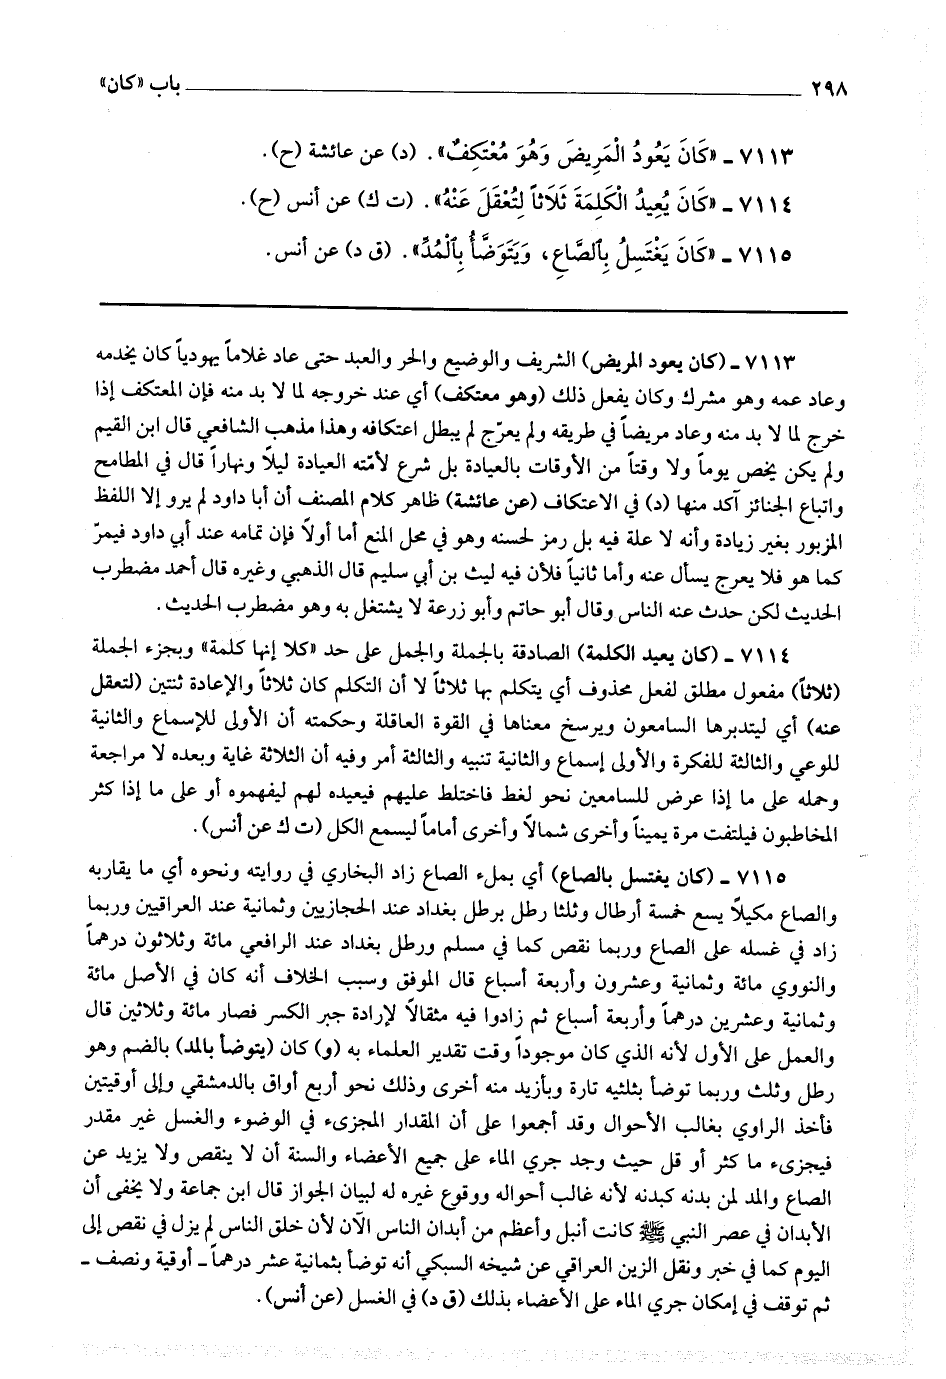 ٢٩٨ باب «كان»
٧١١٣ ـ «كَانَ يَعُودُ الْمَرِيضَ وَهُوَ مُعْتَكِفٌ». (د) عن عائشة (ح).
٧١١٤ ـ «كَانَ يُعِيدُ الْكَلِمَةَ ثَلَاثاً لِتُعْقَلَ عَنْهُ». (ت ك) عن أنس (ح).
٧١١٥ ـ «كَانَ يَغْتَسِلُ بِٱلصَّاعِ، وَيَتَوَضَّأُ بِٱلْمُدِّ». (ق د) عن أنس.
٧١١٣ ـ (كان يعود المريض) الشريف والوضيع والحر والعبد حتى عاد غلاماً يهودياً كان يخدمه
وعاد عمه وهو مشرك وكان يفعل ذلك (وهو معتكف) أي عند خروجه لما لا بد منه فإن المعتكف إذا
خرج لما لا بد منه وعاد مريضاً في طريقه ولم يعرّج لم يبطل اعتكافه وهذا مذهب الشافعي قال ابن القيم
ولم يكن يخص يوماً ولا وقتاً من الأوقات بالعيادة بل شرع لأمّته العيادة ليلاً ونهاراً قال في المطامح
واتباع الجنائز آكد منها (د) في الاعتكاف (عن عائشة) ظاهر كلام المصنف أن أبا داود لم يرو إلا اللفظ
المزبور بغير زيادة وأنه لا علة فيه بل رمز لحسنه وهو في محل المنع أما أولاً فإن تمامه عند أبي داود فيمرّ
كما هو فلا يعرج يسأل عنه وأما ثانياً فلأن فيه ليث بن أبي سليم قال الذهبي وغيره قال أحمد مضطرب
الحديث لكن حدث عنه الناس وقال أبو حاتم وأبو زرعة لا يشتغل به وهو مضطرب الحديث.
٧١١٤ ـ (كان يعيد الكلمة) الصادقة بالجملة والجمل على حد «كلا إنها كلمة» وبجزء الجملة
(ثلاثاً) مفعول مطلق لفعل محذوف أي يتكلم بها ثلاثاً لا أن التكلم كان ثلاثاً والإعادة ثنتين (لتعقل
عنه) أي ليتدبرها السامعون ويرسخ معناها في القوة العاقلة وحكمته أن الأولى للإسماع والثانية
للوعي والثالثة للفكرة والأولى إسماع والثانية تنبيه والثالثة أمر وفيه أن الثلاثة غاية وبعده لا مراجعة
وحمله على ما إذا عرض للسامعين نحو لغط فاختلط عليهم فيعيده لهم ليفهموه أو على ما إذا كثر
المخاطبون فيلتفت مرة يميناً وأخرى شمالاً وأخرى أماماً ليسمع الكل (ت ك عن أنس).
٧١١٥ ـ (كان يغتسل بالصاع) أي بملء الصاع زاد البخاري في روايته ونحوه أي ما يقاربه
والصاع مكيلاً يسع خمسة أرطال وثلثا رطل برطل بغداد عند الحجازيين وثمانية عند العراقيين وربما
زاد في غسله على الصاع وربما نقص كما في مسلم ورطل بغداد عند الرافعي مائة وثلاثون درهماً
والنووي مائة وثمانية وعشرون وأربعة أسباع قال الموفق وسبب الخلاف أنه كان في الأصل مائة
وثمانية وعشرين درهماً وأربعة أسباع ثم زادوا فيه مثقالاً لإرادة جبر الكسر فصار مائة وثلاثين قال
والعمل على الأول لأنه الذي كان موجوداً وقت تقدير العلماء به (و) كان (يتوضأ بالمد) بالضم وهو
رطل وثلث وربما توضأ بثلثيه تارة وبأزيد منه أخرى وذلك نحو أربع أواق بالدمشقي وإلى أوقيتين
فأخذ الراوي بغالب الأحوال وقد أجمعوا على أن المقدار المجزىء في الوضوء والغسل غير مقدر
فيجزىء ما كثر أو قل حيث وجد جري الماء على جميع الأعضاء والسنة أن لا ينقص ولا يزيد عن
الصاع والمد لمن بدنه كبدنه لأنه غالب أحواله ووقوع غيره له لبيان الجواز قال ابن جماعة ولا يخفى أن
الأبدان في عصر النبي ﷺ كانت أنبل وأعظم من أبدان الناس الآن لأن خلق الناس لم يزل في نقص إلى
اليوم كما في خبر ونقل الزين العراقي عن شيخه السبكي أنه توضأ بثمانية عشر درهماً ـ أوقية ونصف ـ
ثم توقف في إمكان جري الماء على الأعضاء بذلك (ق د) في الغسل (عن أنس).